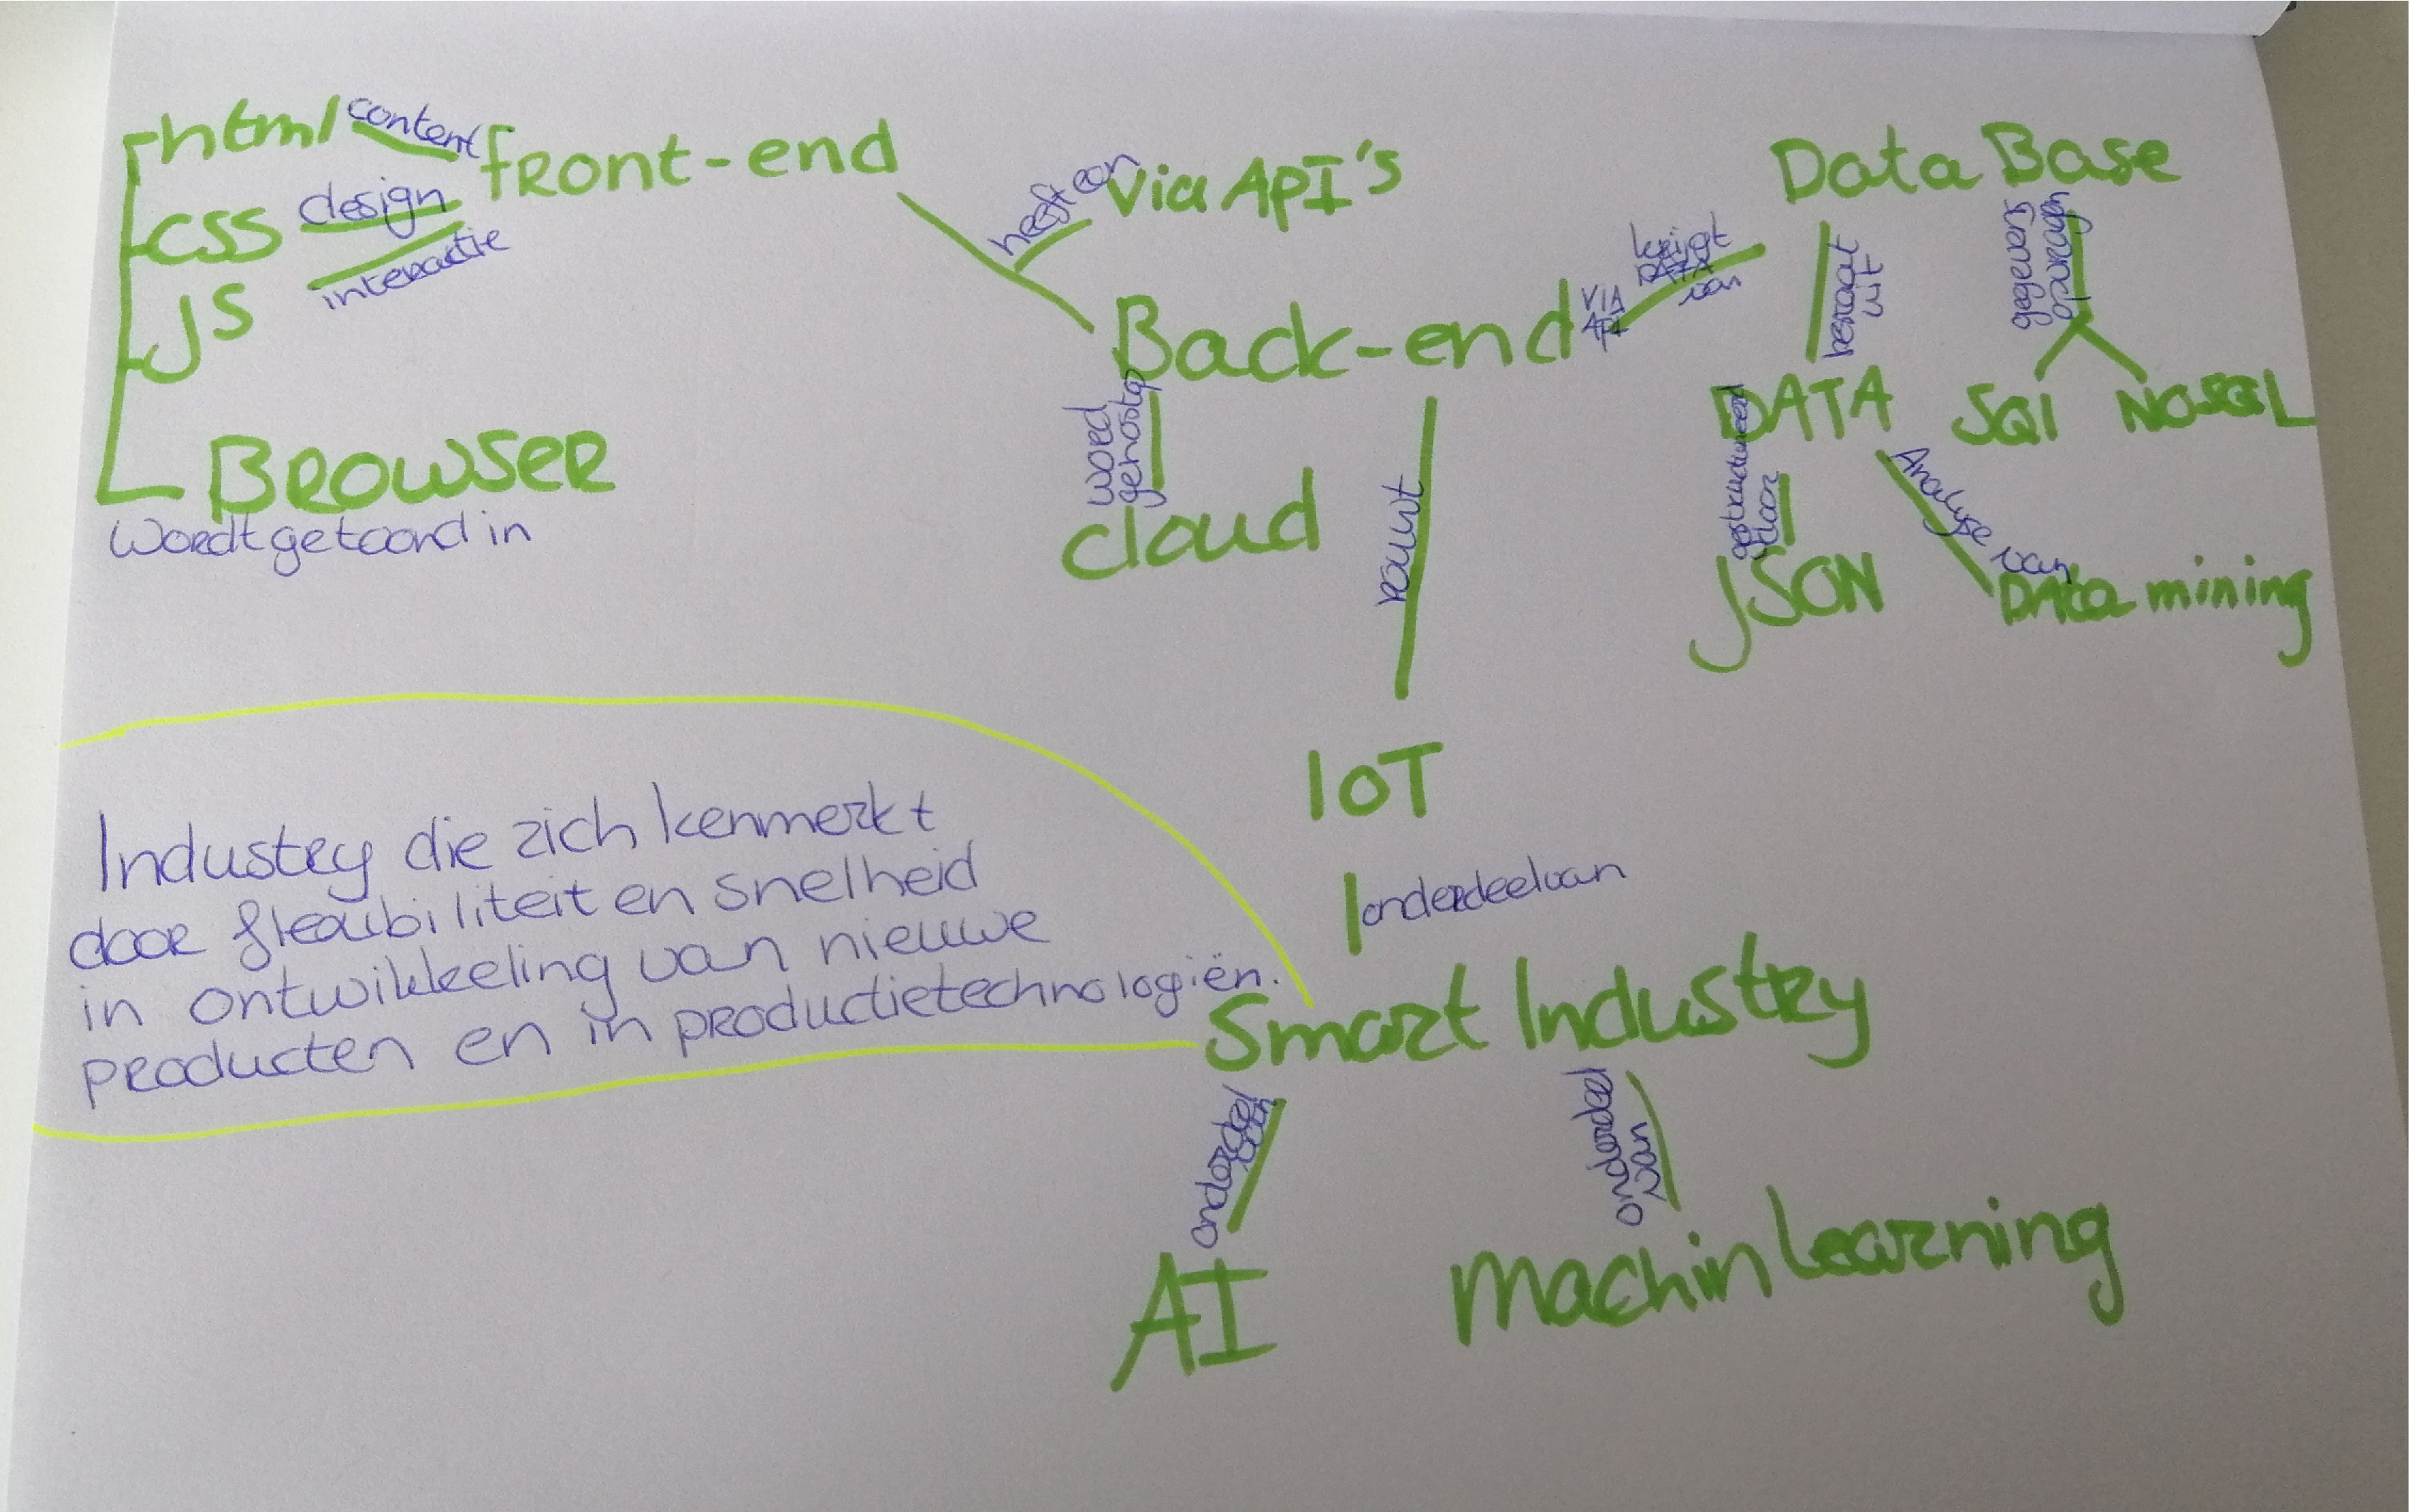 html content front-end
css design
interactie
JS
BROWSER
wordt getoond in
heeft een
Via API's
Back-end
VIA
API
krijgt
DATA
van
Data Base
bestaat
uit
gegevens
opvragen
DATA
SQl
NOSQL
gestructureerd
door
JSON
Analyse van
DAta mining
word
gehost op
cloud
IoT
onderdeel van
Smart Industry
Industry die zich kenmerkt
door flexibiliteit en snelheid
in ontwikkeling van nieuwe
producten en in productietechnologiën.
onderdeel
van
AI
onderdeel
van
Machin Learning